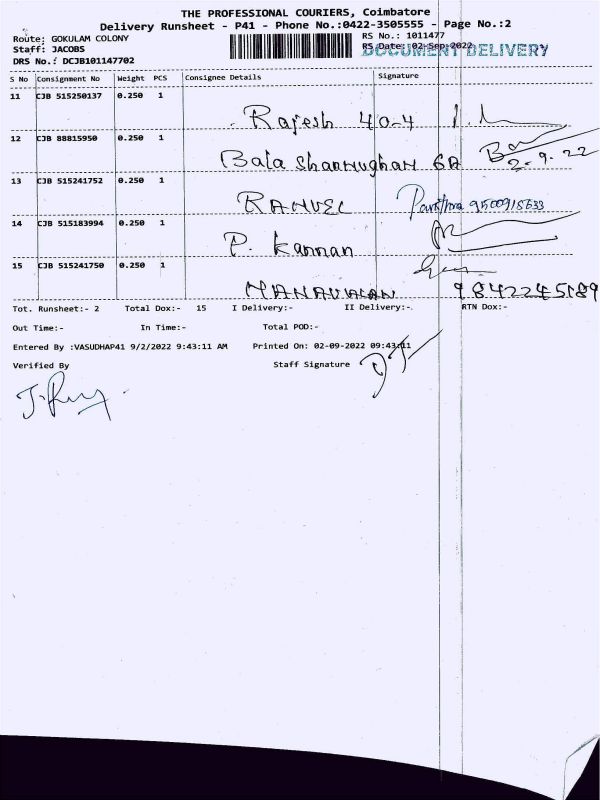 THE PROFESSIONAL COURIERS, Coimbatore
Delivery Runsheet - P41 - Phone No.:0422-3505555 - Page No.:2
Route: GOKULAM COLONY
RS No.: 1011477
Staff: JACOBS
RS Date: 02-Sep-2022
DOCUMENT DELIVERY
DRS No.: DCJB101147702
S No Consignment No Weight PCS Consignee Details Signature
11 CJB 515250137 0.250 1
Rajesh 40-4
12 CJB 88815950 0.250 1
Bala Shanmughan 6A
2-9.22
13 CJB 515241752 0.250 1
Pavithra 9500915633
14 CJB 515183994 0.250 1
P. Kannan
15 CJB 515241750 0.250 1
MANAVALAN 9842245189
Tot. Runsheet:- 2 Total Dox:- 15 I Delivery:- II Delivery:-. RTN Dox:-
Out Time:- In Time:- Total POD:-
Entered By :VASUDHAP41 9/2/2022 9:43:11 AM Printed On: 02-09-2022 09:43:11
Verified By Staff Signature